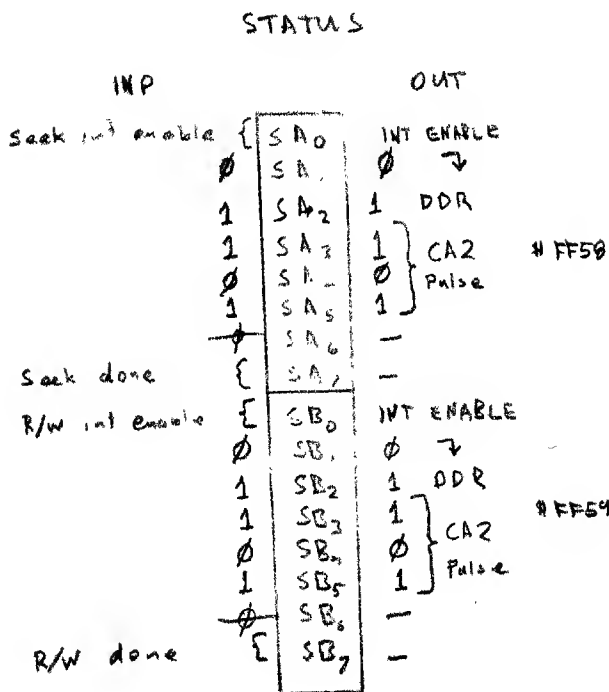 STATUS
INP OUT
Seek int enable { SA0 INT ENABLE
Ø SA1 Ø ↴
1 SA2 1 DDR
1 SA3 1 } CA2 #FF58
Ø SA4 Ø Pulse
1 SA5 1
Ø SA6 —
Seek done { SA7 —
R/W int enable { SB0 INT ENABLE
Ø SB1 Ø ↴
1 SB2 1 DDR
1 SB3 1 } CA2 #FF59
Ø SB4 Ø Pulse
1 SB5 1
Ø SB6 —
R/W done { SB7 —